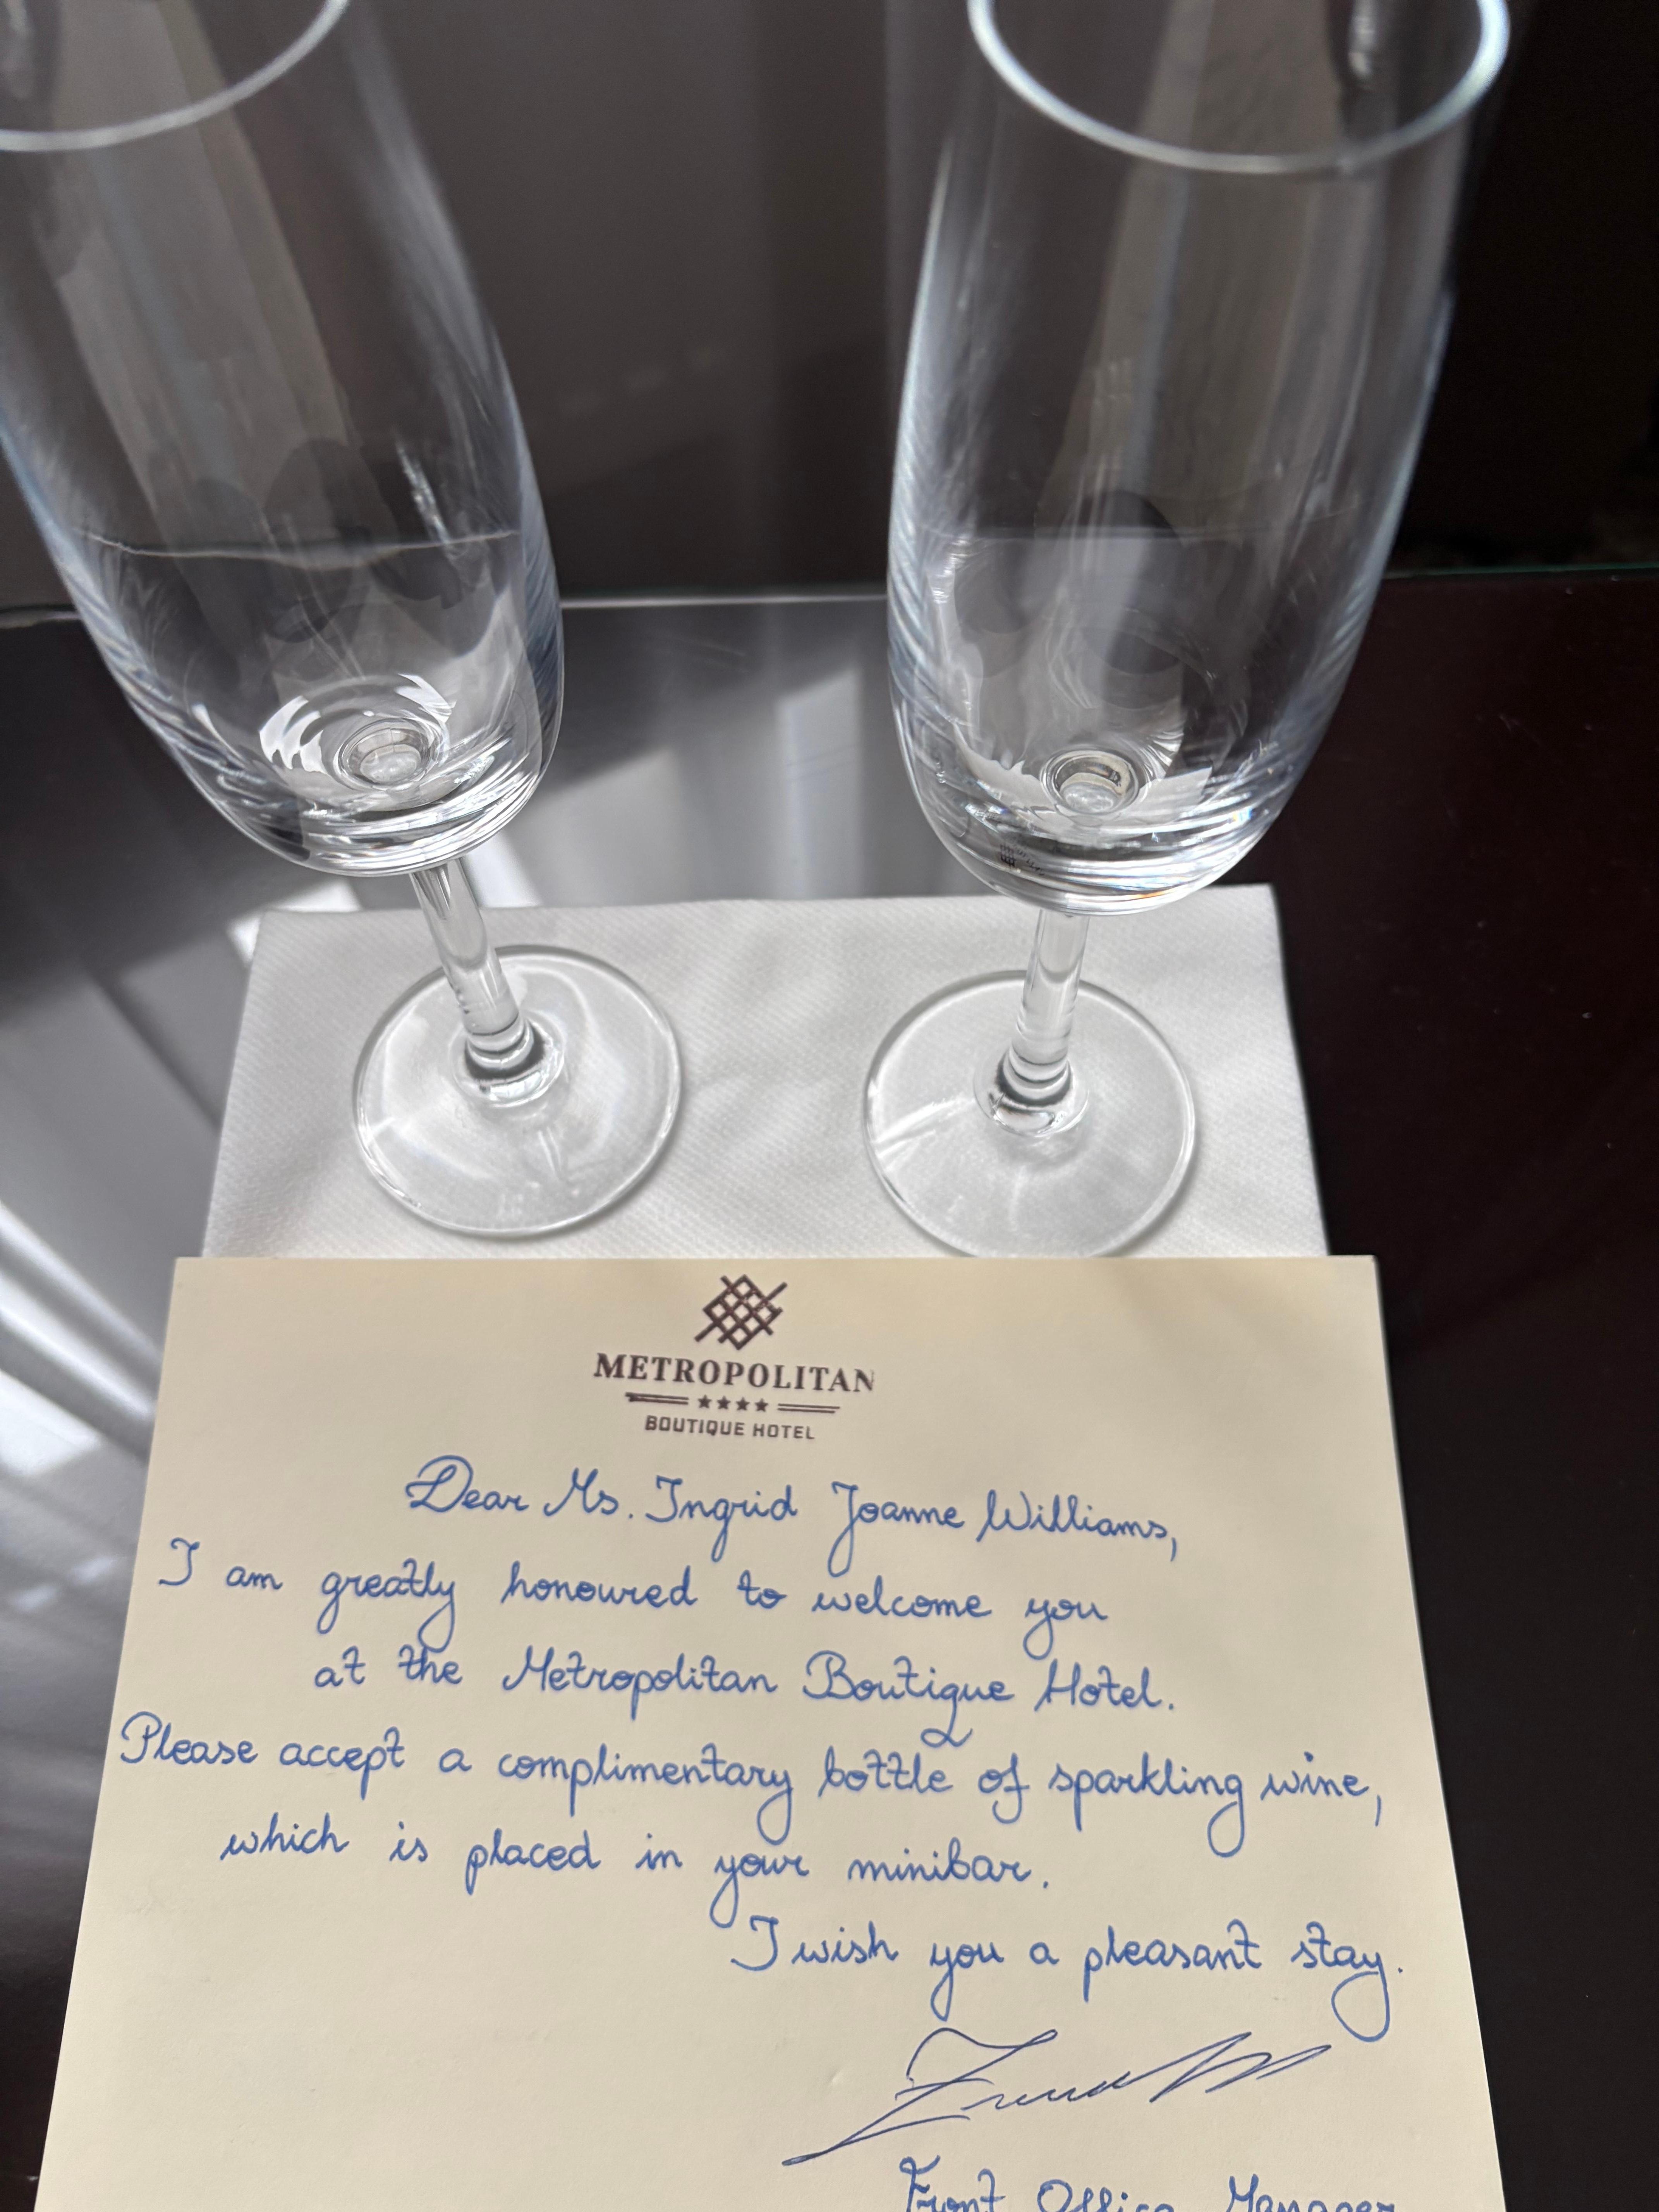 METROPOLITAN
★★★★
BOUTIQUE HOTEL
Dear Ms. Ingrid Joanne Williams,
I am greatly honoured to welcome you
at the Metropolitan Boutique Hotel.
Please accept a complimentary bottle of sparkling wine,
which is placed in your minibar.
I wish you a pleasant stay.
Front Office Manager